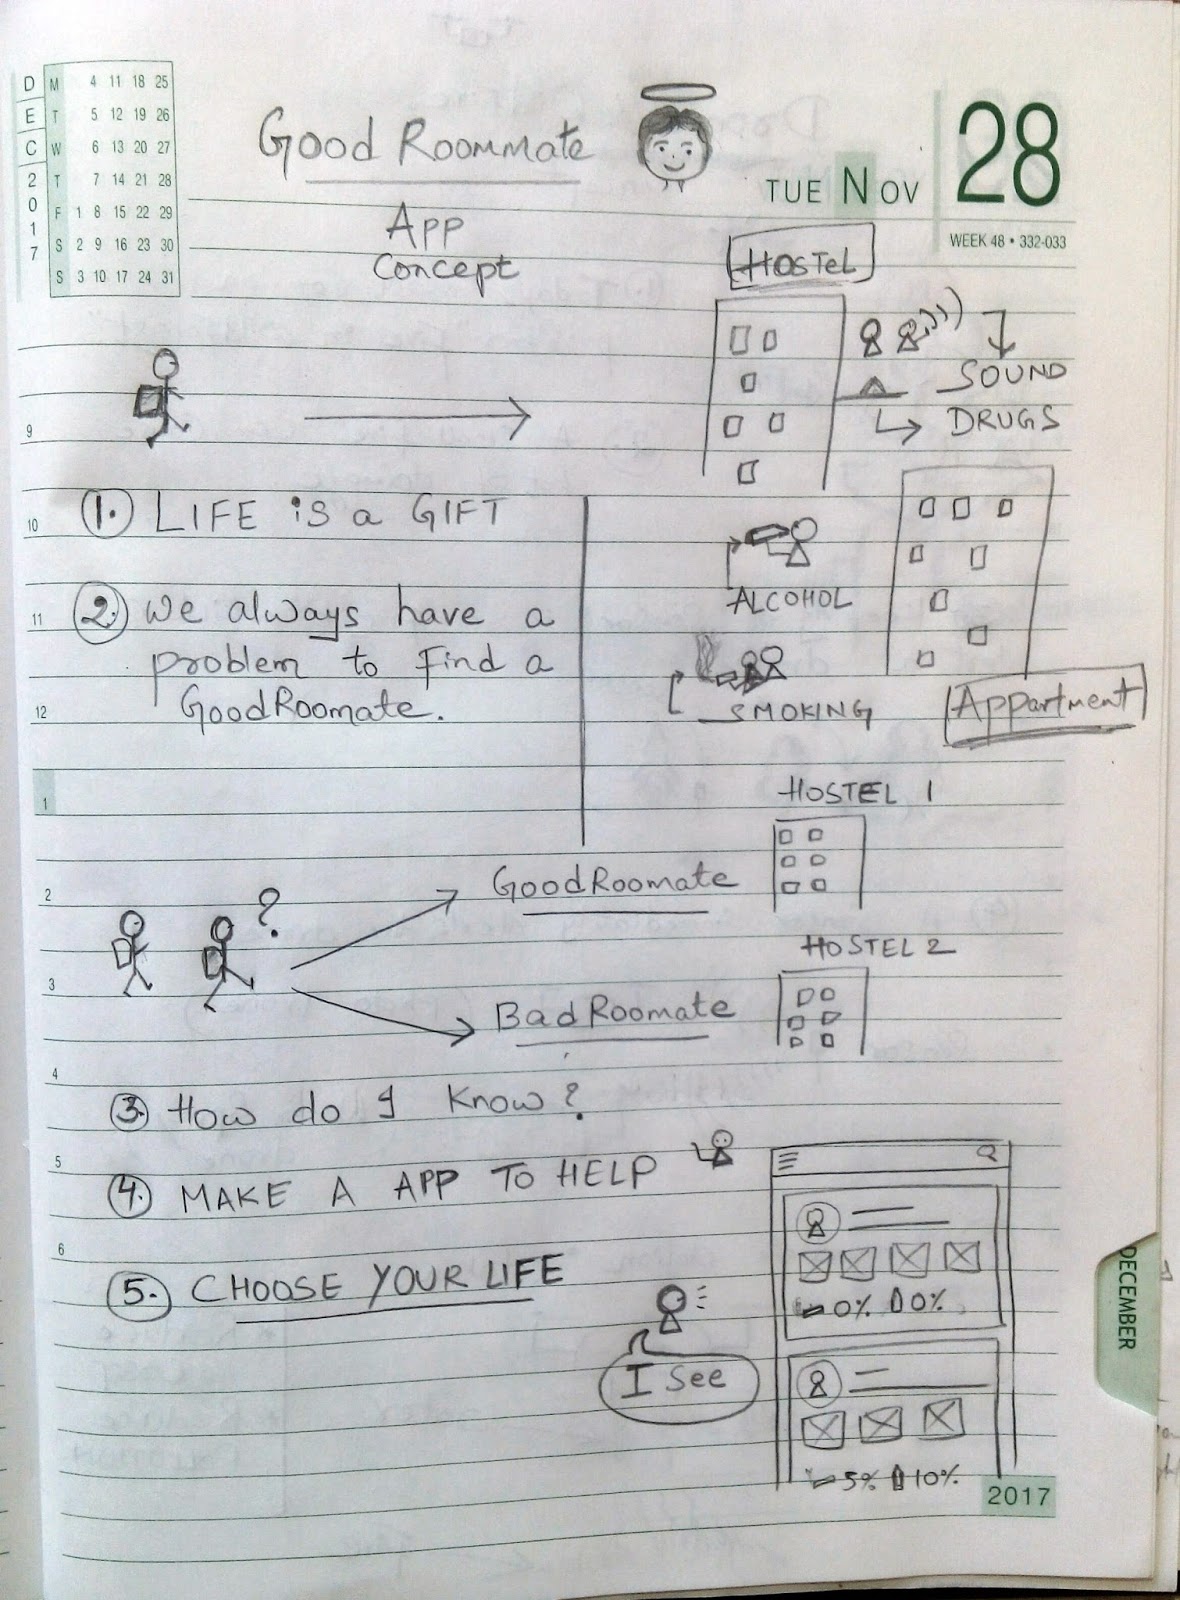 DEC 2017
M 4 11 18 25
T 5 12 19 26
W 6 13 20 27
T 7 14 21 28
F 1 8 15 22 29
S 2 9 16 23 30
S 3 10 17 24 31
Good Roommate
TUE NOV 28
WEEK 48 • 332-033
App
Concept
HOSTEL
SOUND
DRUGS
9
10
1. LIFE is a GIFT
ALCOHOL
11
2. We always have a
problem to Find a
GoodRoomate.
12
SMOKING
Appartment
1
HOSTEL 1
2
GoodRoomate
?
HOSTEL 2
3
BadRoomate
4
3. How do I know?
5
4. MAKE A APP TO HELP
6
5. CHOOSE YOUR LIFE
0% 0%
I See
5% 10%
DECEMBER
2017